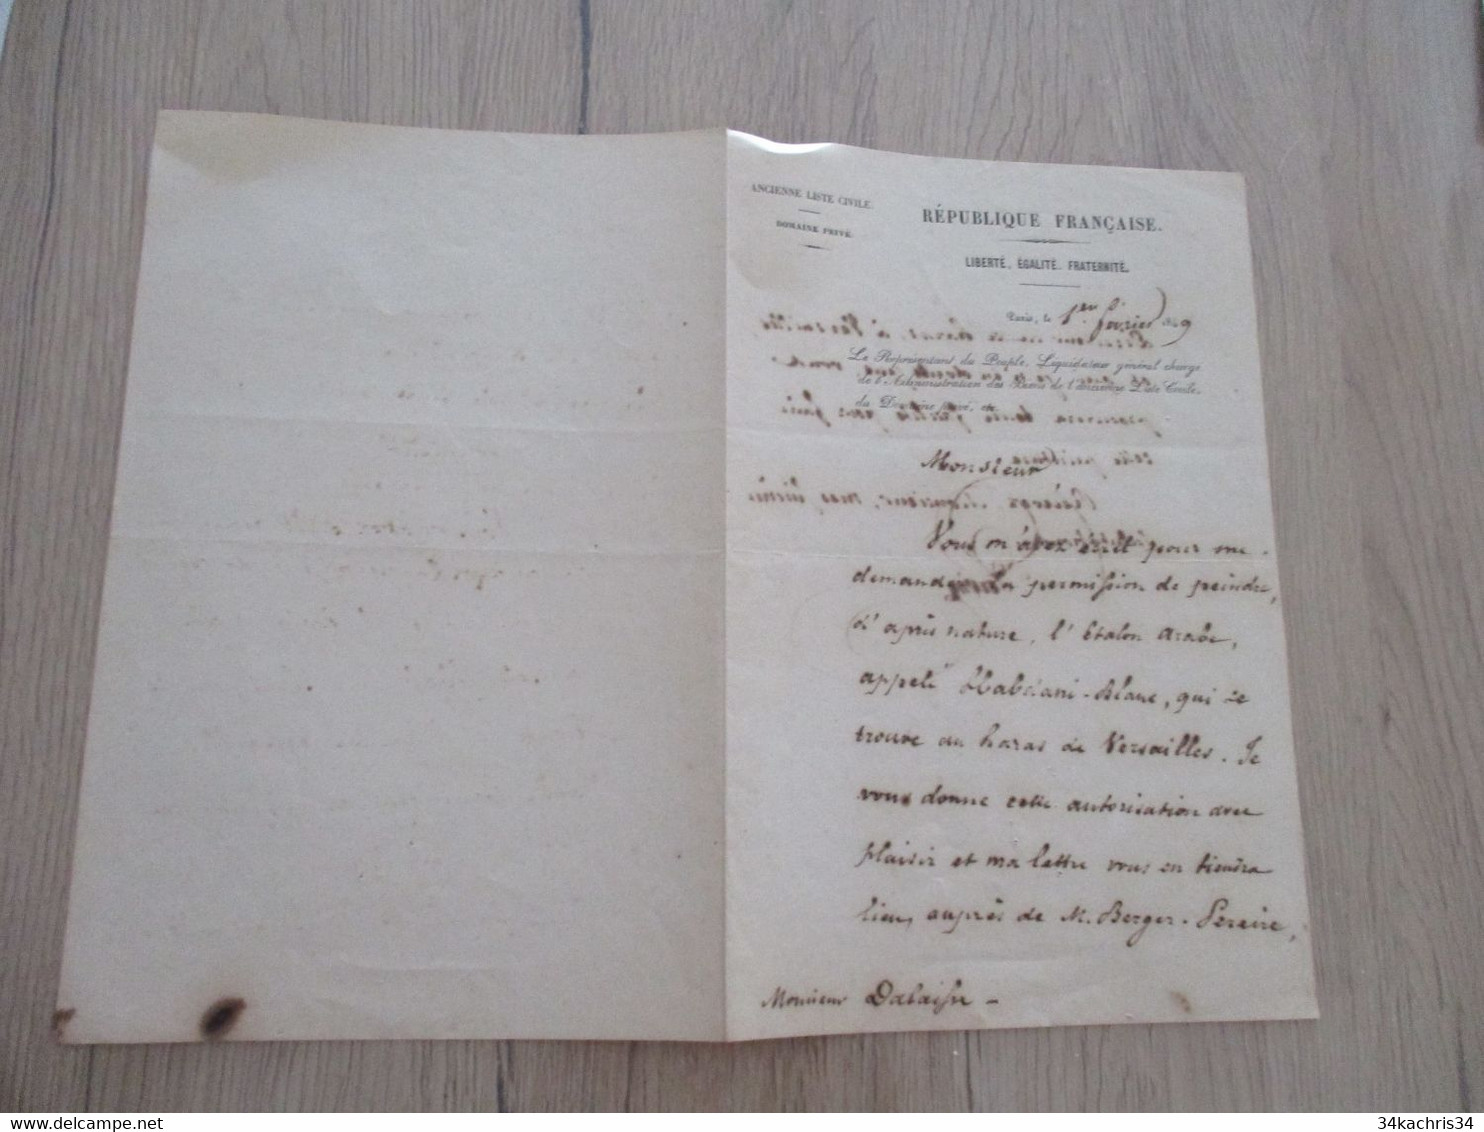 ANCIENNE LISTE CIVILE.
DOMAINE PRIVÉ.
RÉPUBLIQUE FRANÇAISE.
LIBERTÉ, ÉGALITÉ, FRATERNITÉ.
Paris, le 1er février 1849
Le Représentant du Peuple, Liquidateur général chargé
de l'Administration des Biens de l'ancienne Liste Civile,
du Domaine privé, etc.
Monsieur
Vous m'avez écrit pour me
demander la permission de peindre,
d'après nature, l'étalon arabe,
appelé Habdani-Blanc, qui se
trouve au haras de Versailles. Je
vous donne cette autorisation avec
plaisir et ma lettre vous en tiendra
lieu, auprès de M. Berger-Pereire,
Monsieur
34kachris34